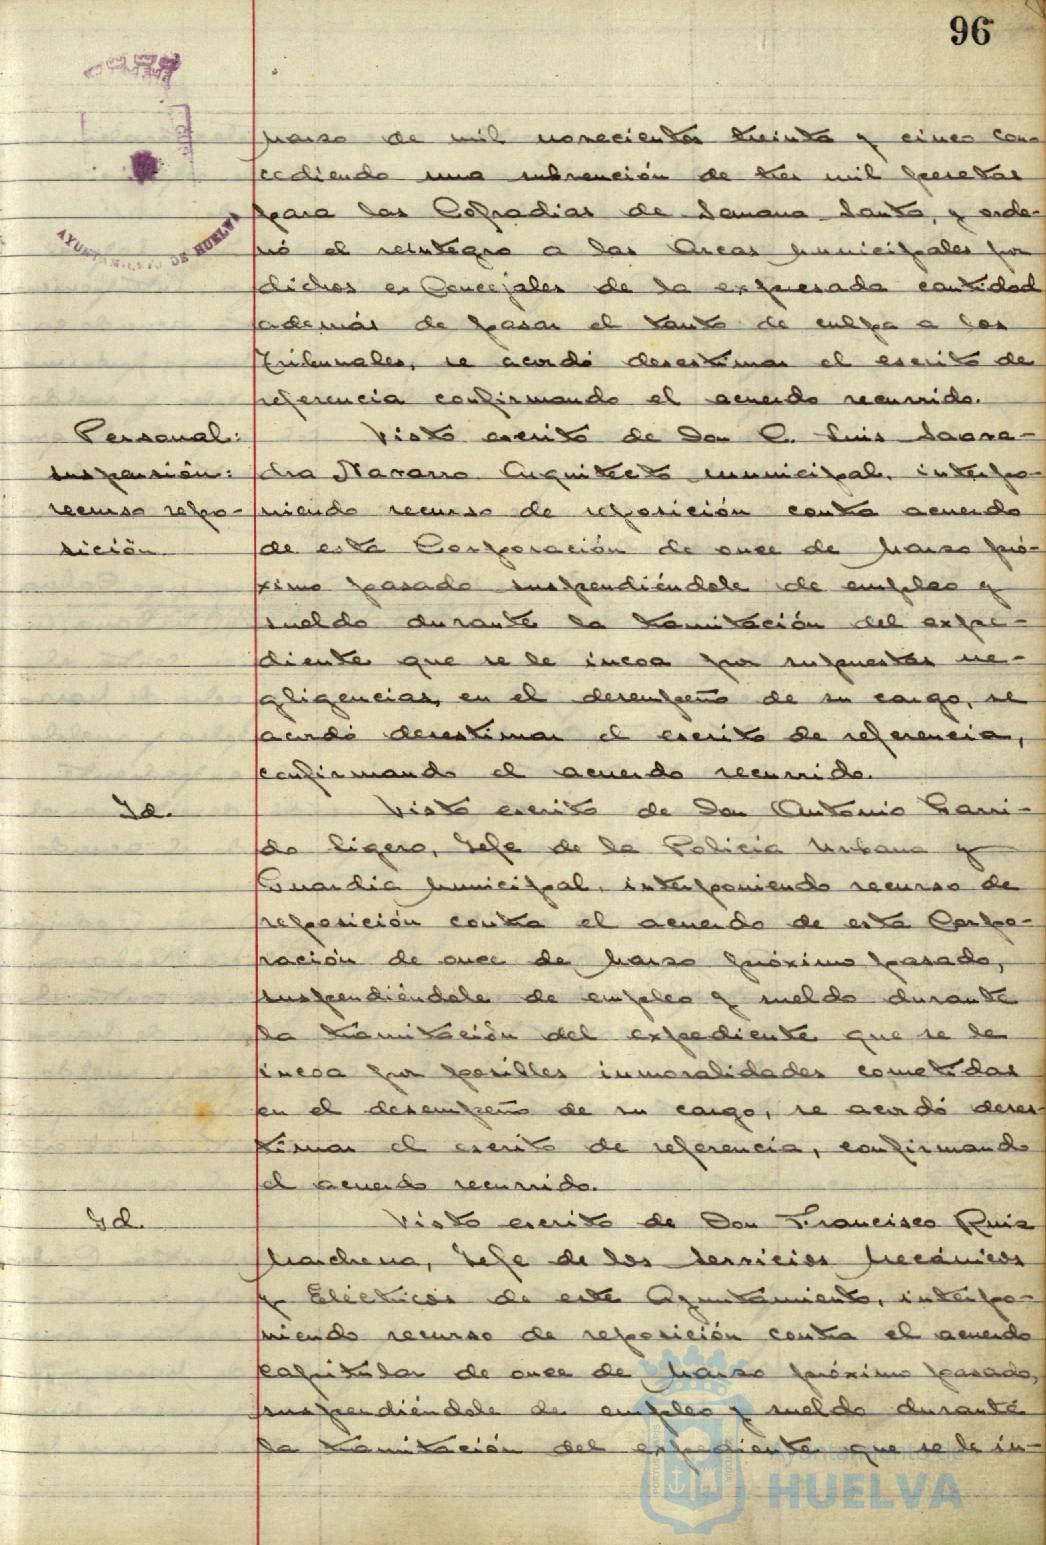 96
AYUNTAMIENTO DE HUELVA
Marzo de mil novecientos treinta y cinco con-
cediendo una subvención de tres mil pesetas
para las Cofradias de Semana Santa, y orde-
nó el reintegro a las Arcas Municipales por
dichos ex Concejales de la expresada cantidad
además de pasar el tanto de culpa a los
Tribunales, se acordó desestimar el escrito de
referencia confirmando el acuerdo recurrido.
Personal:
suspensión:
recurso repo-
sición.
Visto escrito de Don C. Luis Saave-
dra Navarro Arquitecto municipal, interpo-
niendo recurso de reposición contra acuerdo
de esta Corporación de once de Marzo pró-
ximo pasado suspendiéndole de empleo y
sueldo durante la tramitación del expe-
diente que se le incoa por supuestas ne-
gligencias, en el desempeño de su cargo, se
acordó desestimar el escrito de referencia,
confirmando el acuerdo recurrido.
Id.
Visto escrito de Don Antonio Garri-
do Ligero, Jefe de la Policia Urbana y
Guardia Municipal, interponiendo recurso de
reposición contra el acuerdo de esta Corpo-
ración de once de Marzo próximo pasado,
suspendiéndole de empleo y sueldo durante
la tramitación del expediente que se le
incoa por posibles inmoralidades cometidas
en el desempeño de su cargo, se acordó deses-
timar el escrito de referencia, confirmando
el acuerdo recurrido.
Id.
Visto escrito de Don Francisco Ruiz
Marchena, Jefe de los Servicios Mecánicos
y Eléctricos de este Ayuntamiento, interpo-
niendo recurso de reposición contra el acuerdo
capitular de once de Marzo próximo pasado,
suspendiéndole de empleo y sueldo durante
la tramitación del expediente que se le in-
Ayuntamiento de
HUELVA